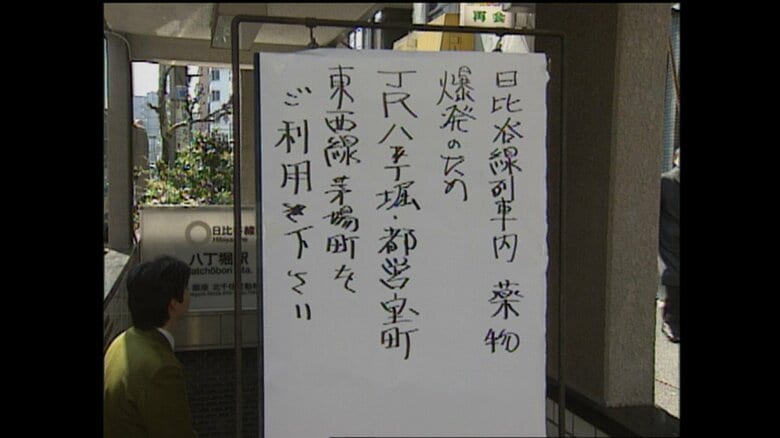 日比谷線列車内 薬物
爆発のため
JR八丁堀・都営宝町
東西線茅場町を
ご利用下さい
日比谷線
八丁堀駅